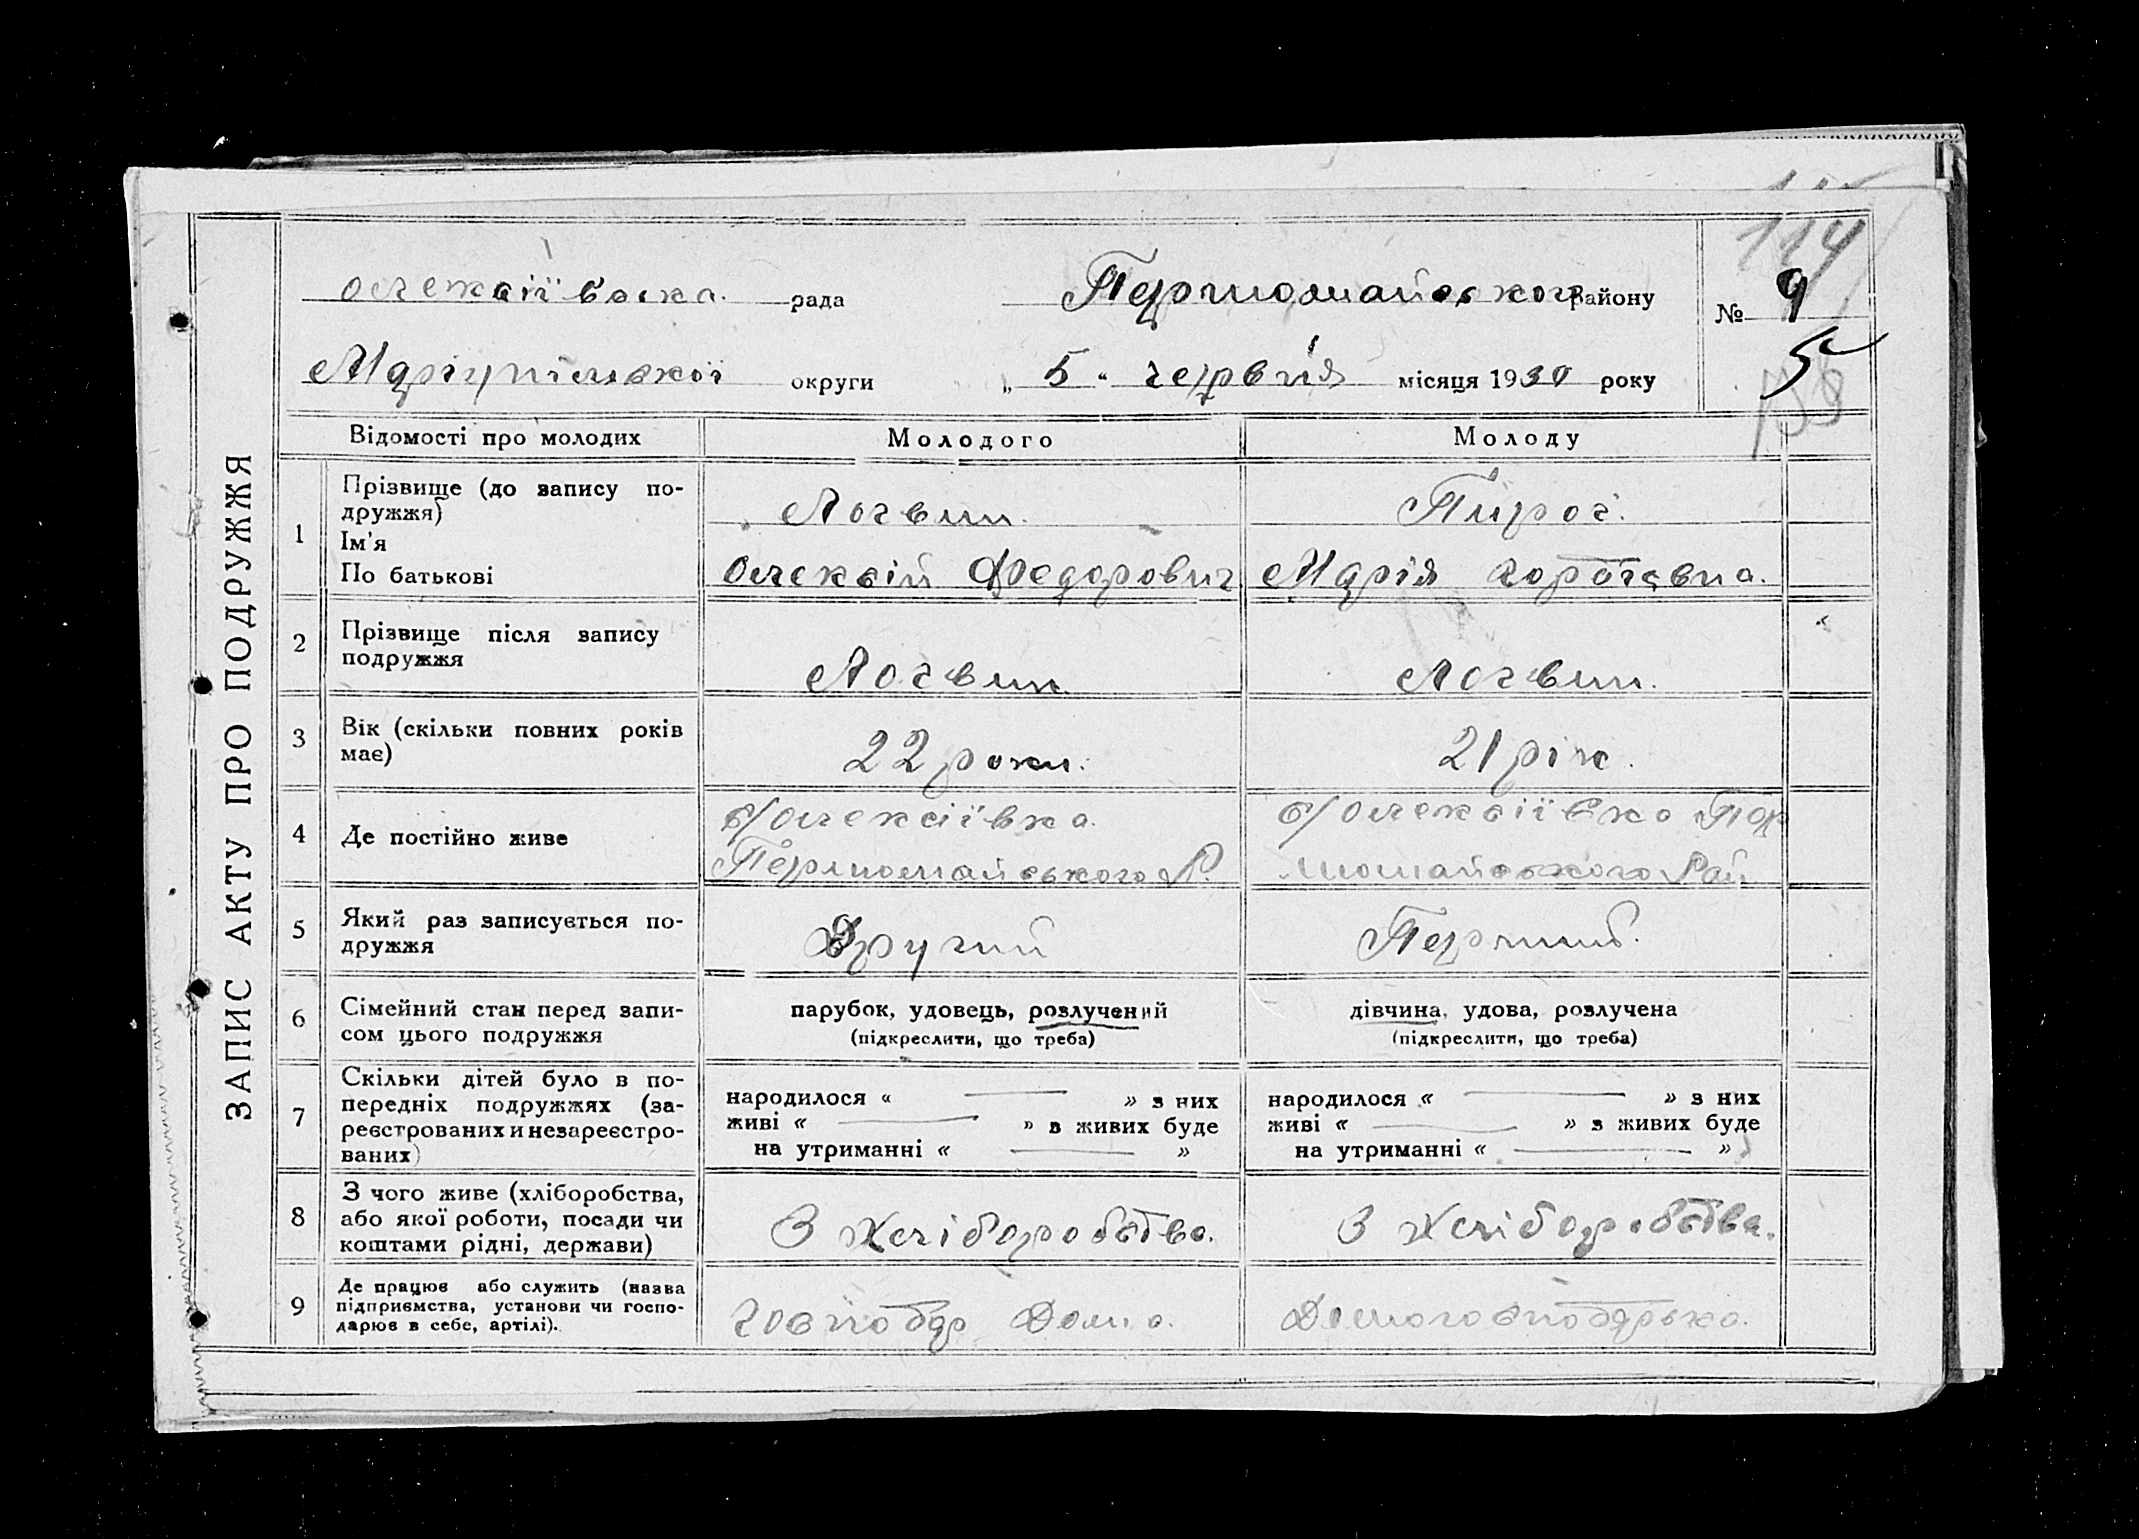 114
Олексіївська рада Першомайського району № 9
Маріупільської округи „ 5 “ червня місяця 1930 року 5
ЗАПИС АКТУ ПРО ПОДРУЖЖЯ
Відомості про молодих Молодого Молоду
1 Прізвище (до запису по-
дружжя) Логвин. Пирог.
Ім'я
По батькові Олексій Федорович Марія
2 Прізвище після запису
подружжя Логвин Логвин.
3 Вік (скільки повних років
має) 22 роки. 21 рік.
4 Де постійно живе с/Олексіївка с/Олексіївка Пер
Першомайського Р. шомайського Рай
5 Який раз записується по-
дружжя Другий Перший.
6 Сімейний стан перед запи-
сом цього подружжя парубок, удовець, розлучений дівчина, удова, розлучена
(підкреслити, що треба) (підкреслити, що треба)
7 Скільки дітей було в по-
передніх подружжях (за-
реєстрованих и незареєстро-
ваних)
народилося « — » з них народилося « — » з них
живі « — » в живих буде живі « — » з живих буде
на утриманні « — » на утриманні « — »
8 З чого живе (хліборобства,
або якої роботи, посади чи
коштами рідні, держави) З хліборобства. З хліборобства.
9 Де працює або служить (назва
підприємства, установи чи госпо-
дарює в себе, артілі). господар Дома. Домогосподарька.